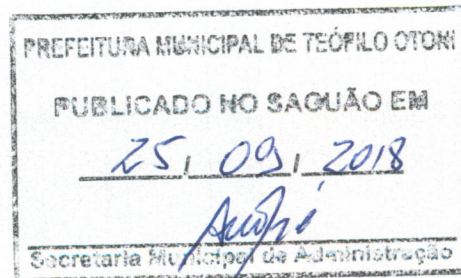 PREFEITURA MUNICIPAL DE TEÓFILO OTONI
PUBLICADO NO SAGUÃO EM
25, 09, 2018
Secretaria Municipal de Administração